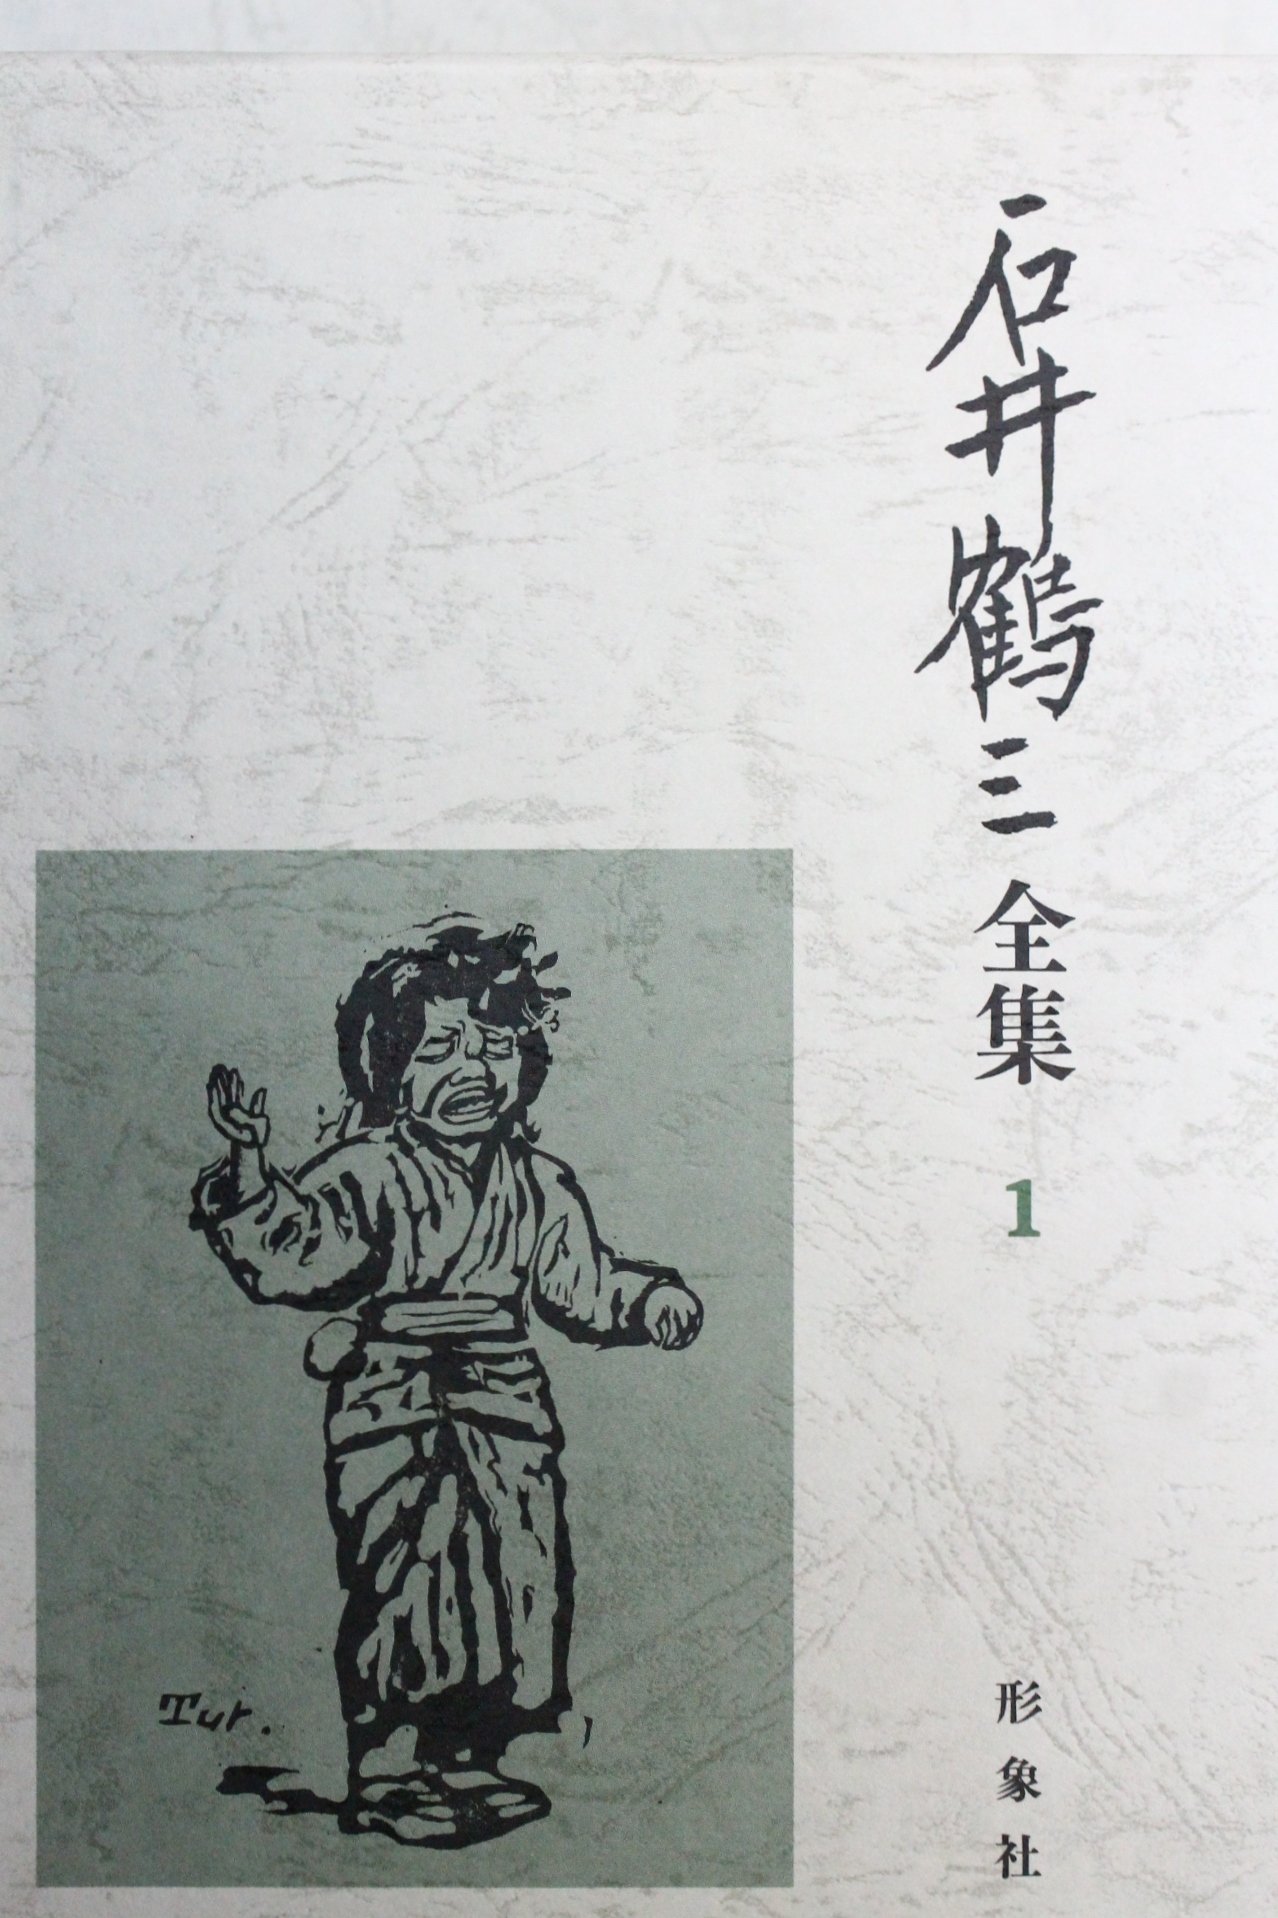 石井鶴三全集 1
形象社
Tur.